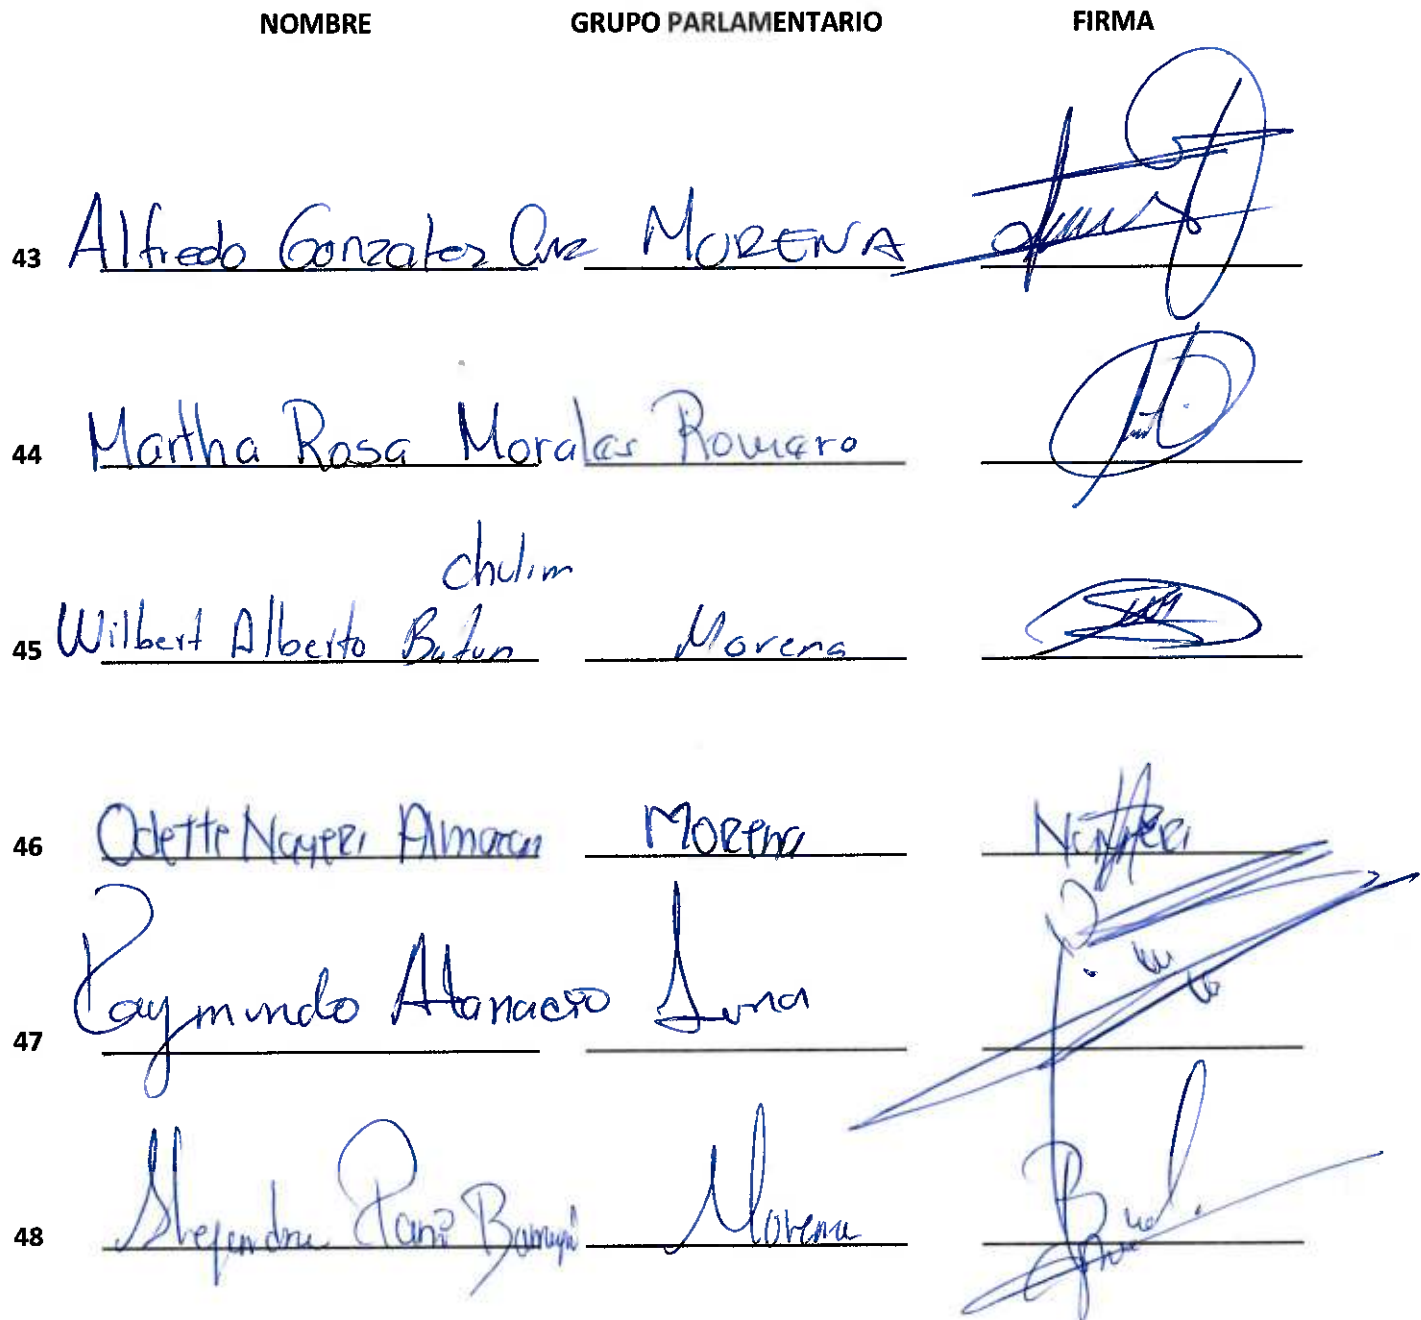 NOMBRE GRUPO PARLAMENTARIO FIRMA
43 Alfredo Gonzalez Cruz MORENA
44 Martha Rosa Morales Romero
chulim
45 Wilbert Alberto Batun Morena
46 Odette Nayeri Almazan Morena Nayeri
47 Raymundo Atanacio Luna
48 Alejandra Pani Barragán Morena